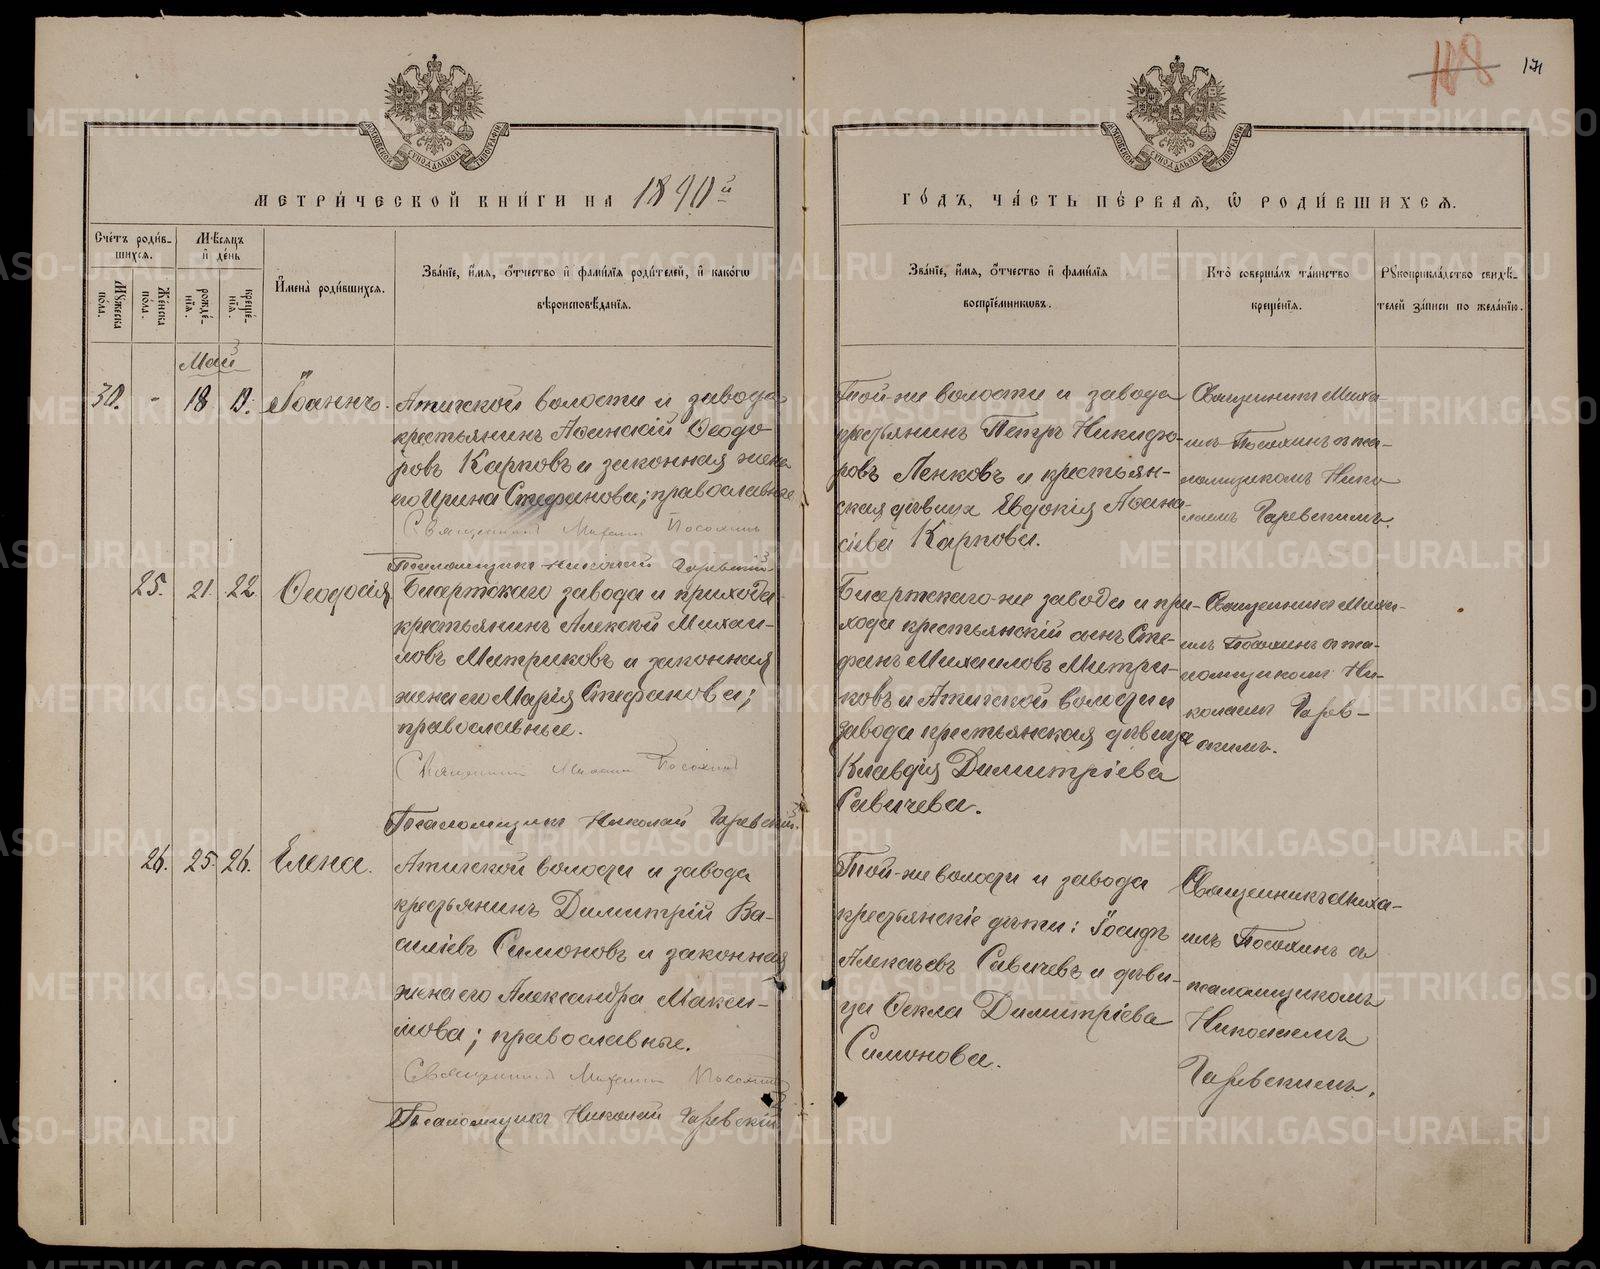 108
171
МОСКОВСКОЙ СѴНОДАЛЬНОЙ ТИПОГРАФІИ
МОСКОВСКОЙ СѴНОДАЛЬНОЙ ТИПОГРАФІИ
МЕТРИ́ЧЕСКОЙ КНИ́ГИ НА 1890 й
ГО́ДЪ, ЧА́СТЬ ПЕ́РВАѦ, Ѡ҆ РОДИ́ВШИХСѦ.
Сче́тъ роди́в-
шихсѧ.
Мѣ́сѧцъ
и҆ де́нь
Мꙋ́жеска
по́ла.
Же́нска
по́ла.
рожде́-
нїѧ.
креще́-
нїѧ.
И҆мена̀ роди́вшихсѧ.
Зва́нїе, и҆́мѧ, ѻ҆́тчество и҆ фами́лїѧ роди́телей, и҆ како́гѡ
вѣроисповѣ́данїѧ.
Зва́нїе, и҆́мѧ, ѻ҆́тчество и҆ фами́лїѧ
воспрїе́мникѡвъ.
Кто̀ соверша́лъ та́инство
креще́нїѧ.
Рꙋкоприкла́дство свидѣ́-
телей за́писи по жела́нїю.
Май
30. - 18 19. Іоаннъ.
Атигской волости и завода
крестьянинъ Аѳанасій Ѳеодо-
ровъ Карповъ и законная жена
его Ирина Стефанова; православные
Священникъ Михаилъ Посохинъ
Псаломщикъ Николай Гаревскій
Той-же волости и завода
крестьянинъ Петръ Никифо-
ровъ Пенковъ и крестьян-
ская дѣвица Евдокія Аѳана-
сіева Карпова.
Священникъ Миха-
илъ Посохинъ съ пса-
ломщикомъ Нико
лаемъ Гаревскимъ.
25. 21. 22 Ѳеодосія
Бисертскаго завода и прихода
крестьянинъ Алексѣй Михаи-
ловъ Митриковъ и законная
жена его Марія Стефанова;
православные.
Священникъ Михаилъ Посохинъ
Псаломщикъ Николай Гаревскій.
Бисертскаго-же завода и при-
хода крестьянскій сынъ Сте-
фанъ Михаиловъ Митри-
ковъ и Атигской волости и
завода крестьянская дѣвица
Клавдія Димитріева
Савичева.
Священникъ Миха-
илъ Посохинъ съ пса-
ломщикомъ Ни-
колаемъ Гарев-
скимъ.
26. 25. 26. Елена.
Атигской волости и завода
крестьянинъ Димитрій Ва-
силіевъ Симоновъ и законная
жена его Александра Макси-
мова; православные.
Священникъ Михаилъ Посохинъ
Псаломщикъ Николай Гаревскій
Той-же волости и завода
крестьянскіе дѣти: Іосифъ
Алексѣевъ Савичевъ и дѣви-
ца Ѳекла Димитріева
Симонова.
Священникъ Миха-
илъ Посохинъ съ
псаломщикомъ
Николаемъ
Гаревскимъ.
METRIKI.GASO-URAL.RU